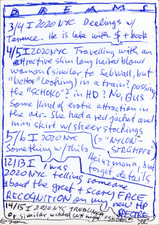 DREAMS
3/4 I 2020 NYC Dealings w/
Terence. He is late with $ + book
4/5 I 2020 NYC Travelling with an
attractive skin long haired blond
woman (similar to Schwall, but
"better clothing") in a train? passing
the "SCHOKO"? in HD? No Bus
Some kind of erotic attraction in
the air. She had a red jacket and
mini skirt w/ sheer stockings
5/6 I 2020 NYC (= "NYLON-
Something w/ STRÜMPFE"
forgot details
12/13 I I was
2020 NYC telling someone
about the great + scary FACE
RECOGNITION on my new HP
14/15 I 2020 NYC SPECTRE
or similar